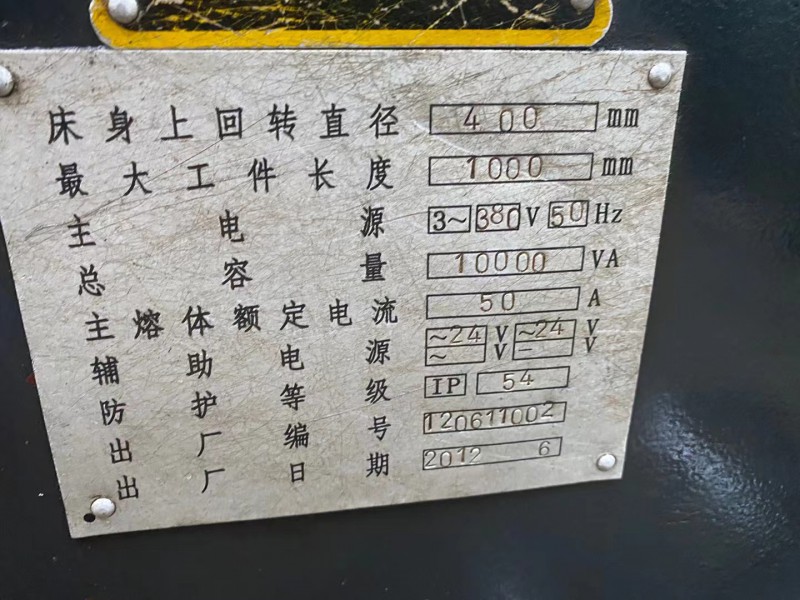 床身上回转直径 400 mm
最大工件长度 1000 mm
主电源 3~ 380 V 50 Hz
总容量 10000 VA
主熔体额定电流 50 A
辅助电源 ~24 V ~24 V
~ V — V
防护等级 IP 54
出厂编号 120611002
出厂日期 2012 6